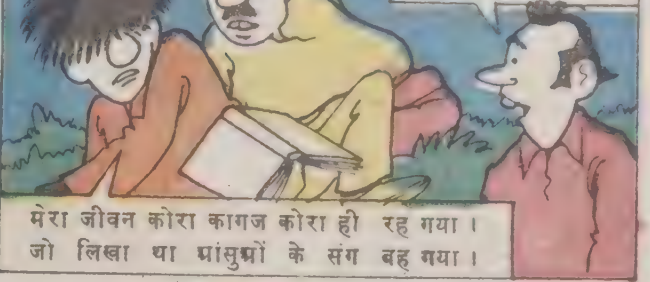 मेरा जीवन कोरा कागज कोरा ही रह गया ।
जो लिखा था प्रांसुप्रों के संग बह गया ।